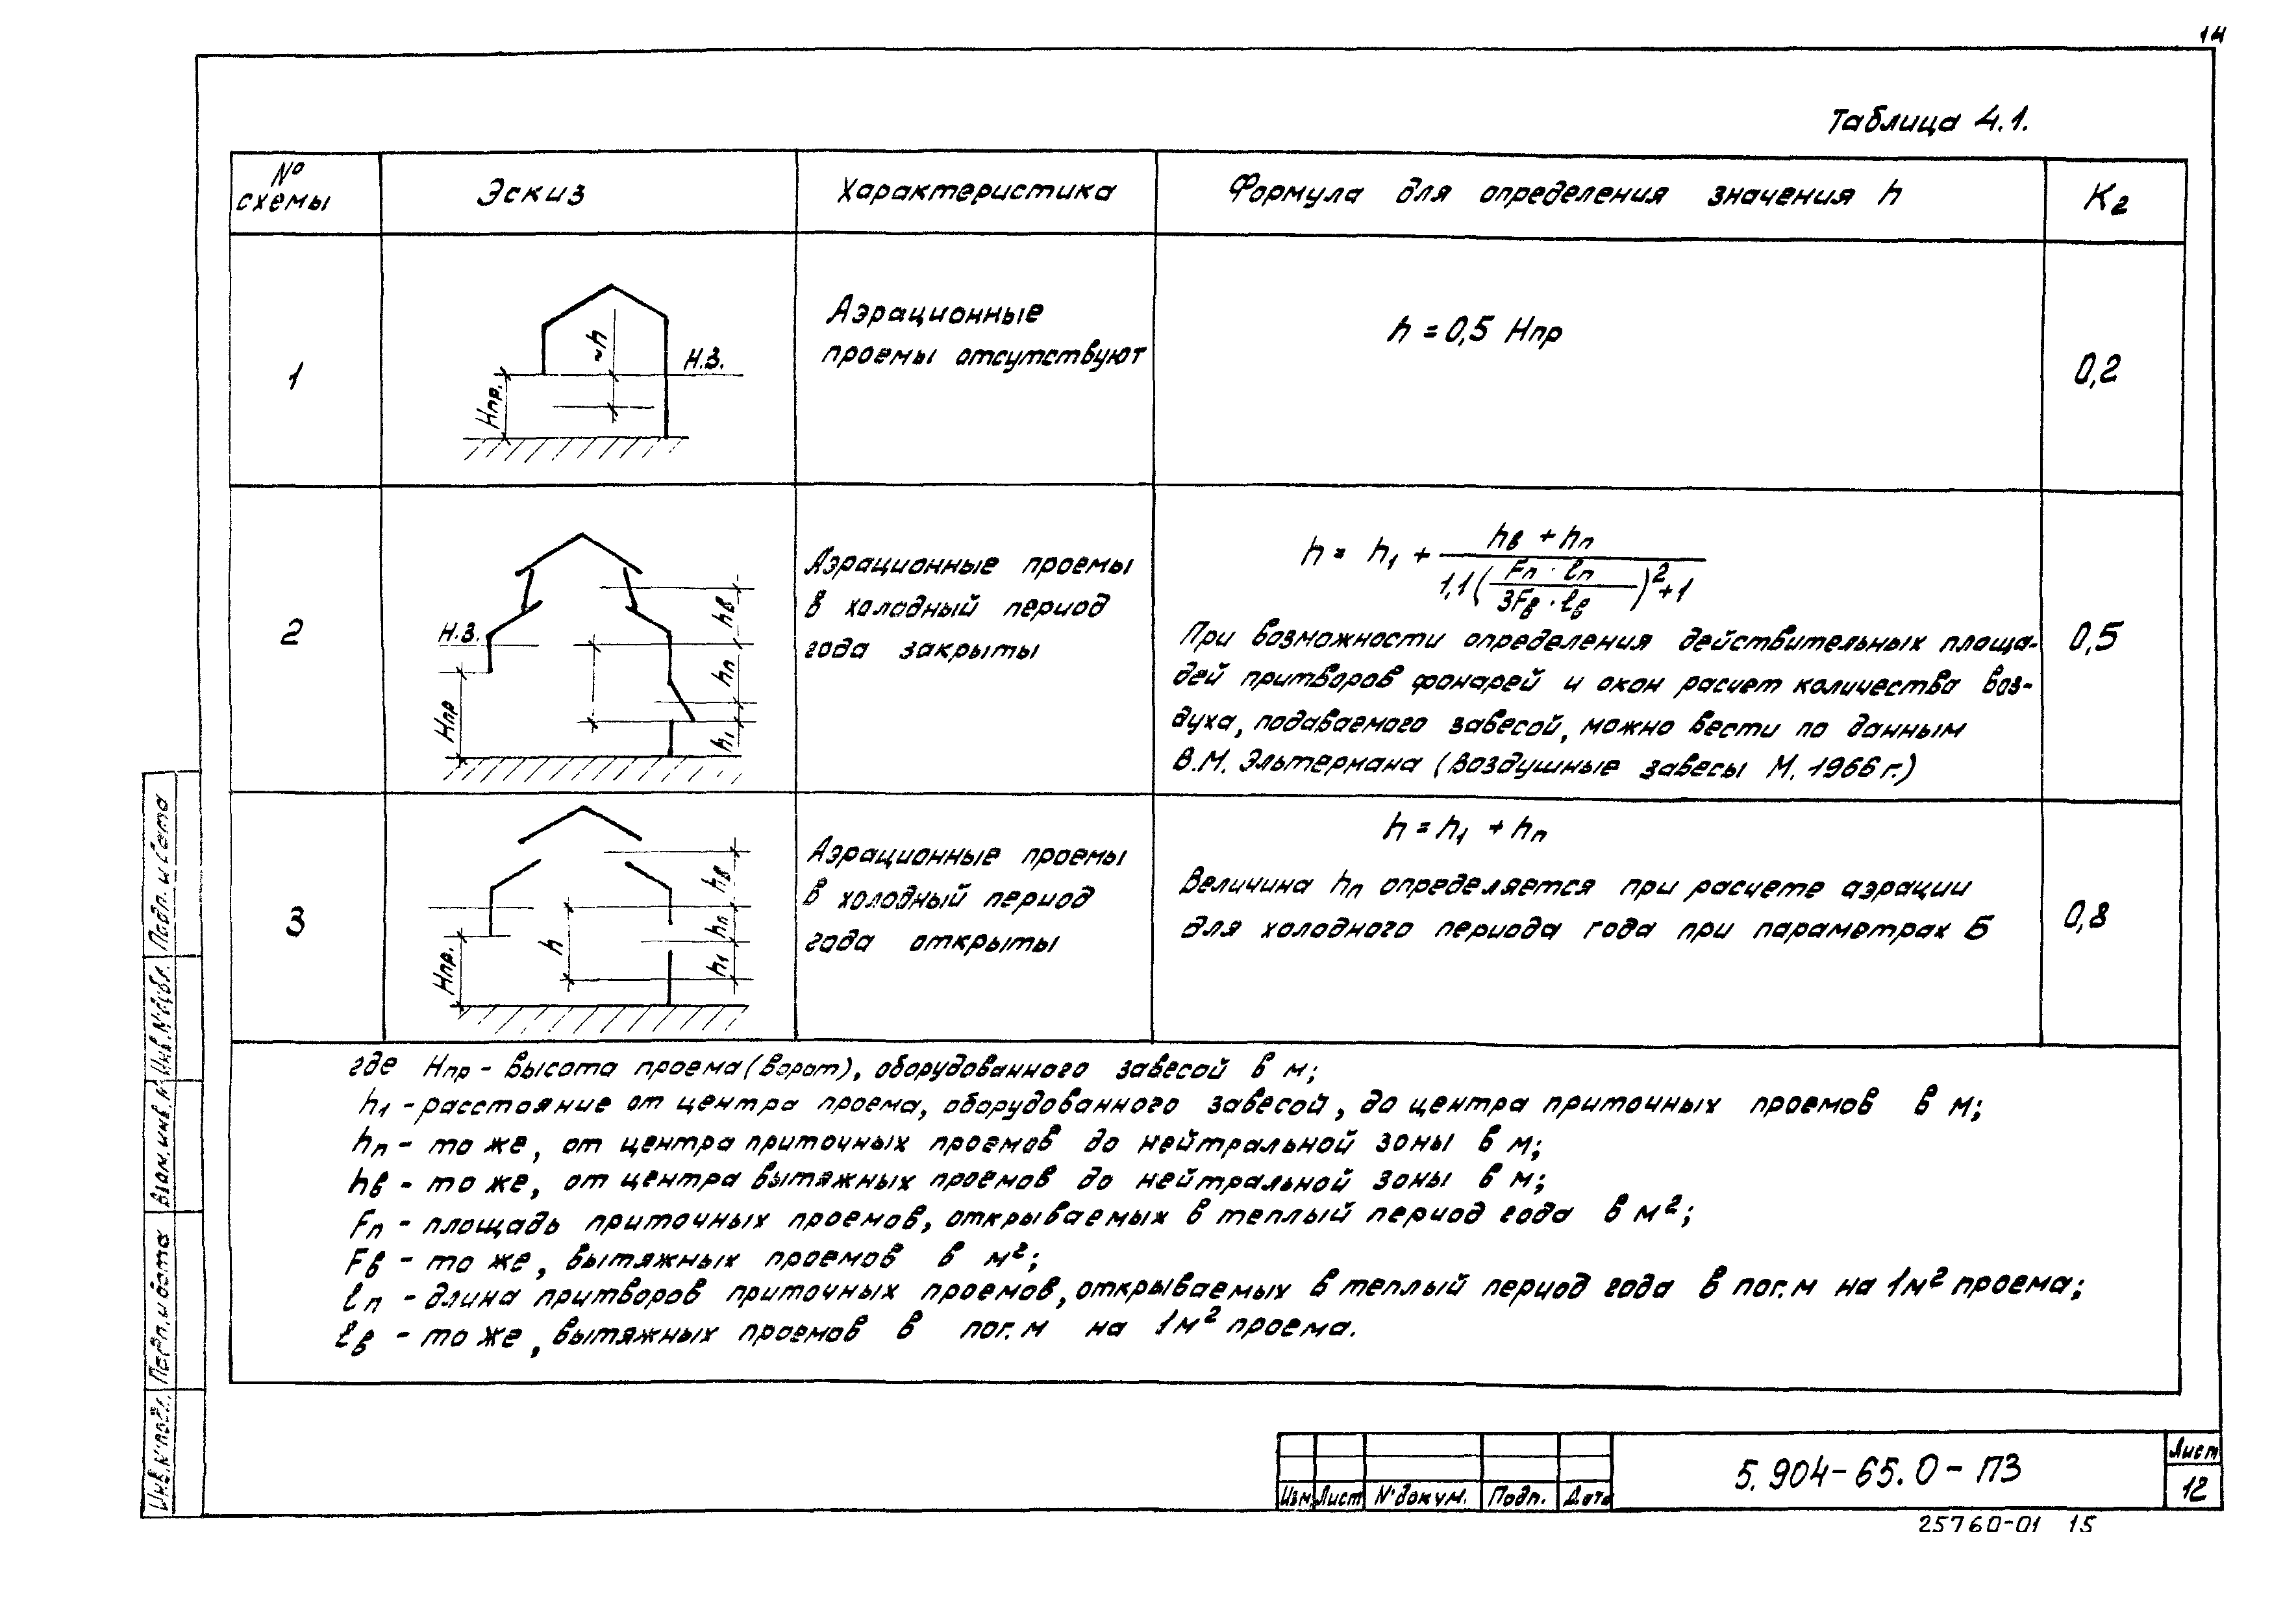 14
Таблица 4.1.
№ схемы
Эскиз
Характеристика
Формула для определения значения h
К₂
1
Нпр.
~h
Н.З.
Аэрационные
проемы отсутствуют
h = 0,5 Нпр
0,2
2
Н.З.
Нпр
hв
hп
h₁
Аэрационные проемы
в холодный период
года закрыты
h = h₁ + (hв + hп) / (1,1 (Fп · lп / 3Fв · lв)² + 1)
При возможности определения действительных площа-
дей притворов фонарей и окон расчет количества воз-
духа, подаваемого завесой, можно вести по данным
В.М. Эльтермана (Воздушные завесы М. 1966 г.)
0,5
3
Нпр.
h
hв
hп
h₁
Аэрационные проемы
в холодный период
года открыты
h = h₁ + hп
Величина hп определяется при расчете аэрации
для холодного периода года при параметрах Б
0,8
где Нпр - высота проема (ворот), оборудованного завесой в м;
h₁ - расстояние от центра проема, оборудованного завесой, до центра приточных проемов в м;
hп - то же, от центра приточных проемов до нейтральной зоны в м;
hв - то же, от центра вытяжных проемов до нейтральной зоны в м;
Fп - площадь приточных проемов, открываемых в теплый период года в м²;
Fв - то же, вытяжных проемов в м²;
lп - длина притворов приточных проемов, открываемых в теплый период года в пог. м на 1м² проема;
lв - то же, вытяжных проемов в пог. м на 1м² проема.
Инв. № подл.
Подп. и дата
Взам. инв. №
Инв. № дубл.
Подп. и дата
Изм
Лист
№ докум.
Подп.
Дата
5.904-65.0-ПЗ
Лист
12
25760-01 15